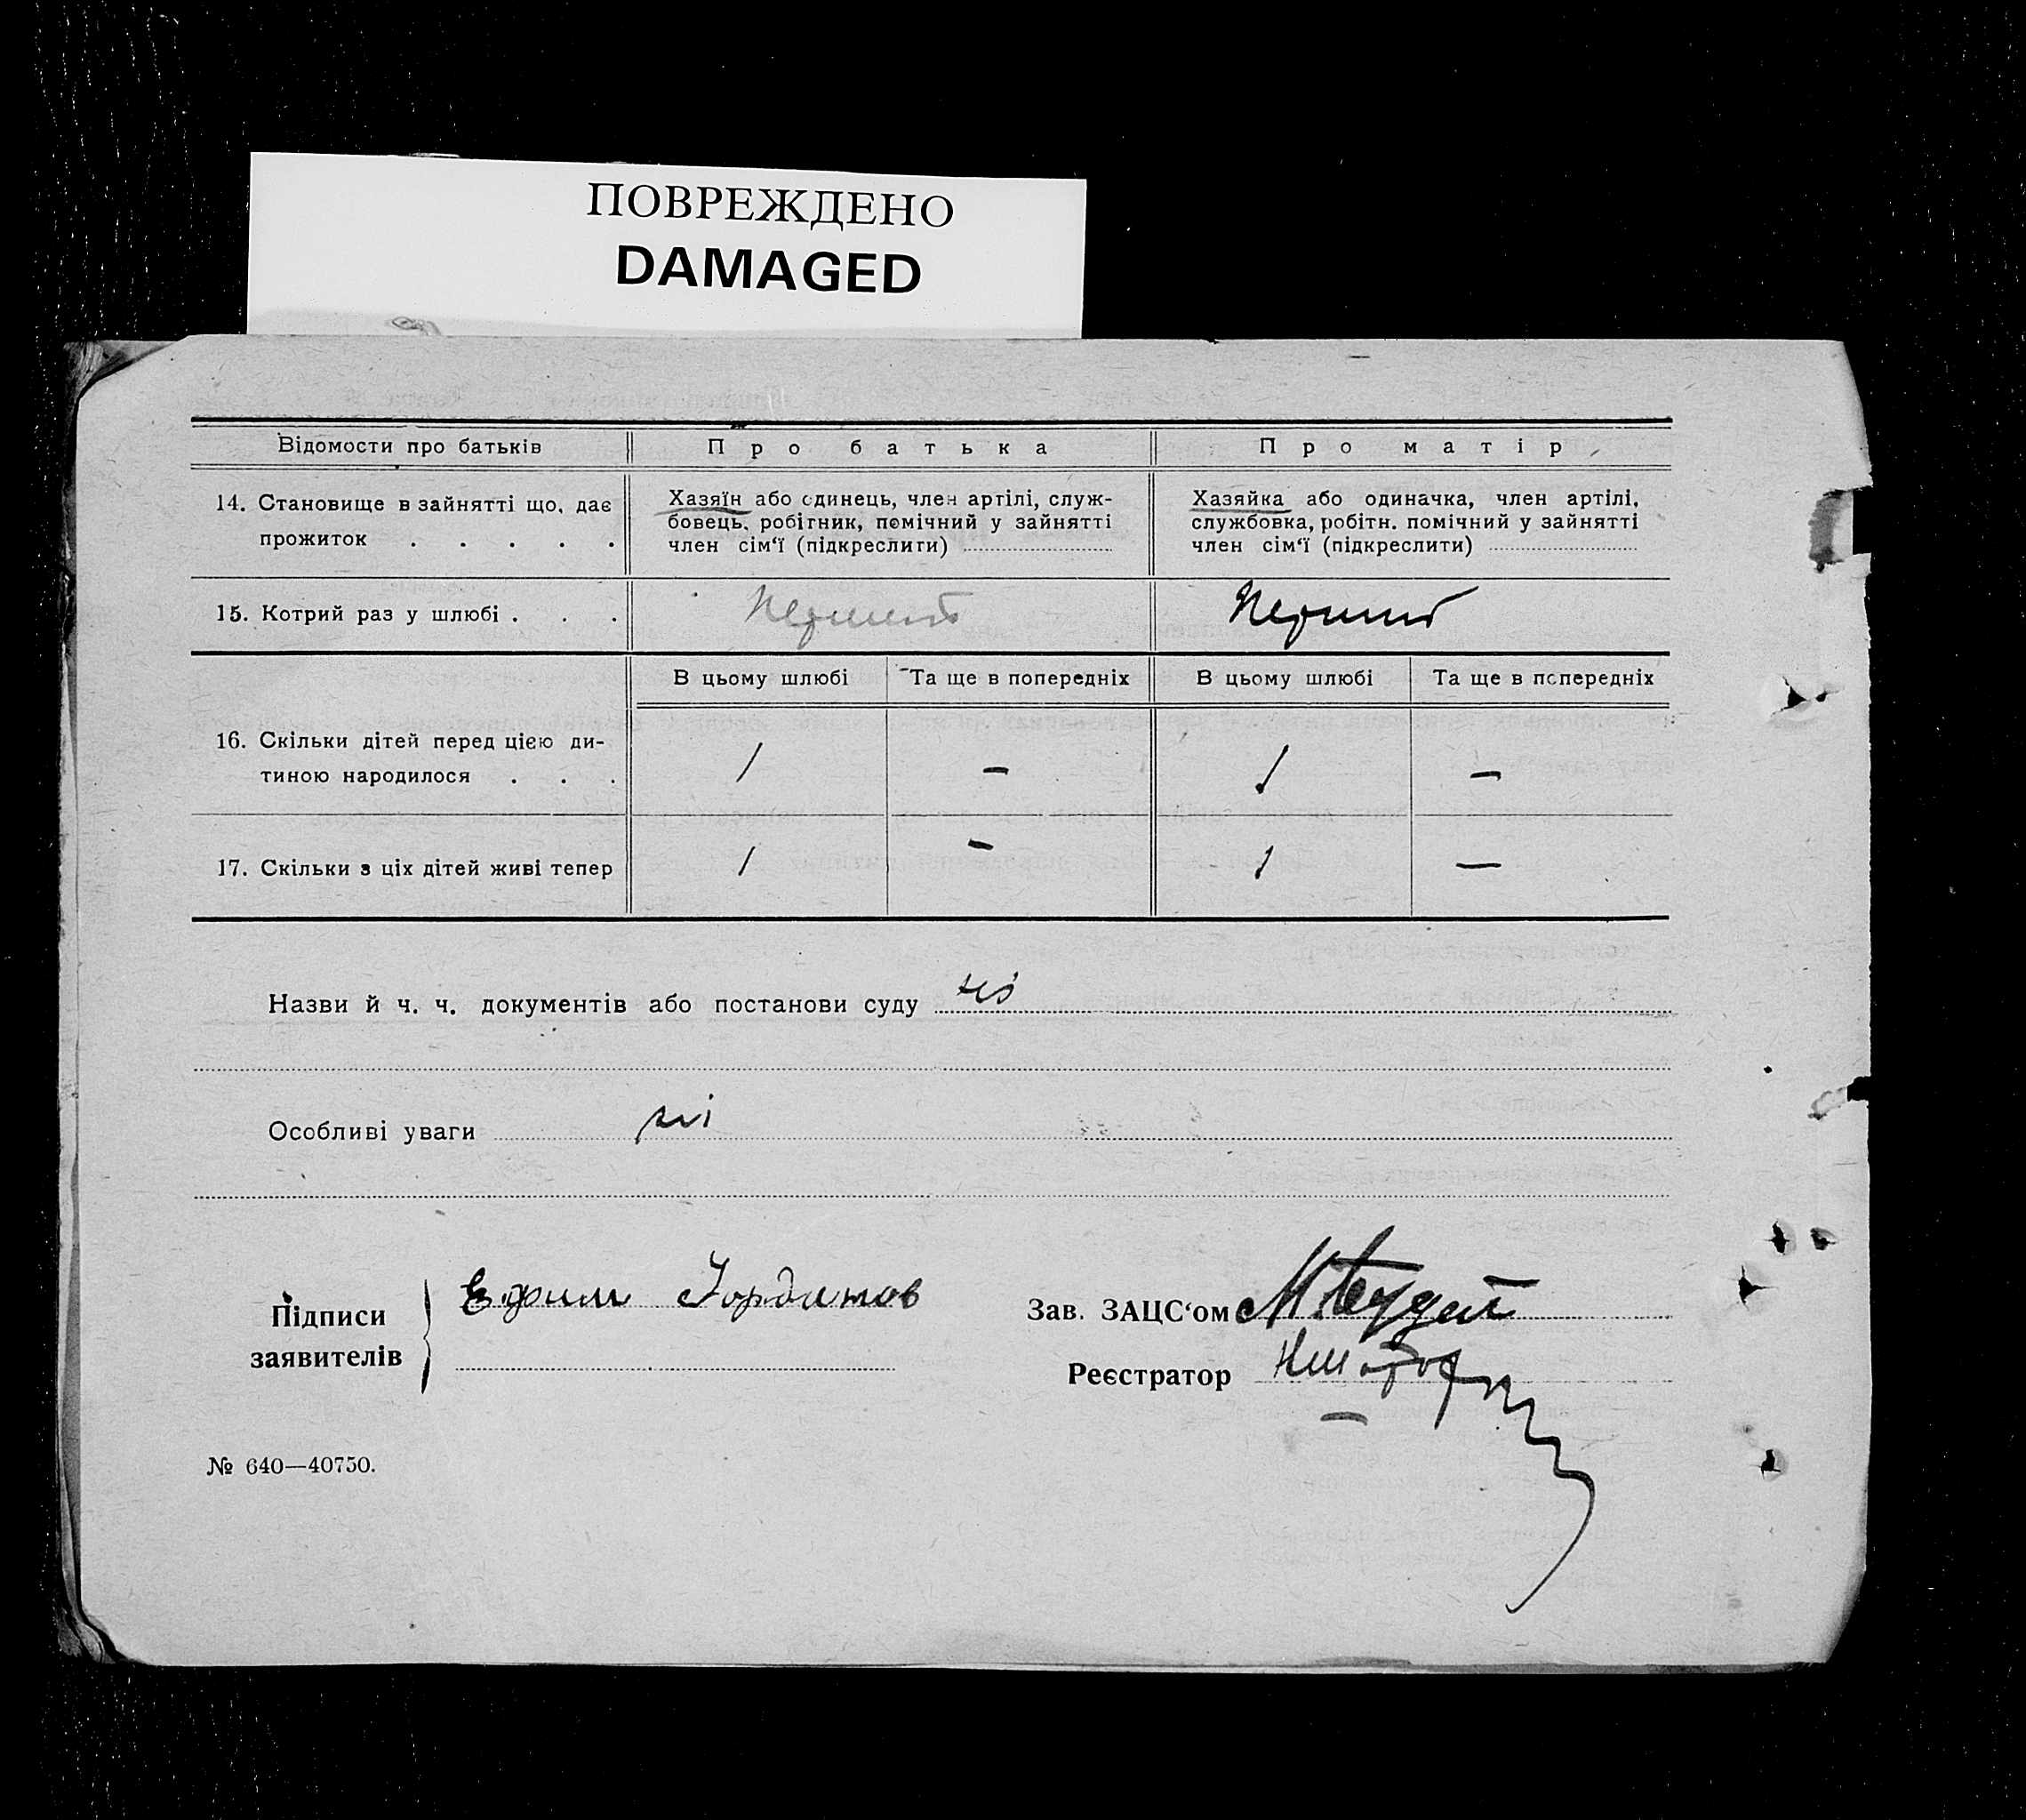 ПОВРЕЖДЕНО
DAMAGED
Відомости про батьків
Про батька
Про матір
14. Становище в зайнятті що, дає
прожиток . . . . .
Хазяїн або одинець, член артілі, служ-
бовець, робігник, помічний у зайнятті
член сім‘ї (підкреслиги)
Хазяйка або одиначка, член артілі,
службовка, робітн. помічний у зайнятті
член сім‘ї (підкреслити)
15. Котрий раз у шлюбі . . .
Перший
Перший
В цьому шлюбі
Та ще в попередніх
В цьому шлюбі
Та ще в попередніх
16. Скільки дітей перед цією ди-
тиною народилося . . .
1 — 1 —
17. Скільки з ціх дітей живі тепер
1 — 1 —
Назви й ч. ч. документів або постанови суду ні
Особливі уваги ні
Підписи
заявителів
Ефим Іорданов
Зав. ЗАЦС‘ом
Реєстратор
№ 640—40750.